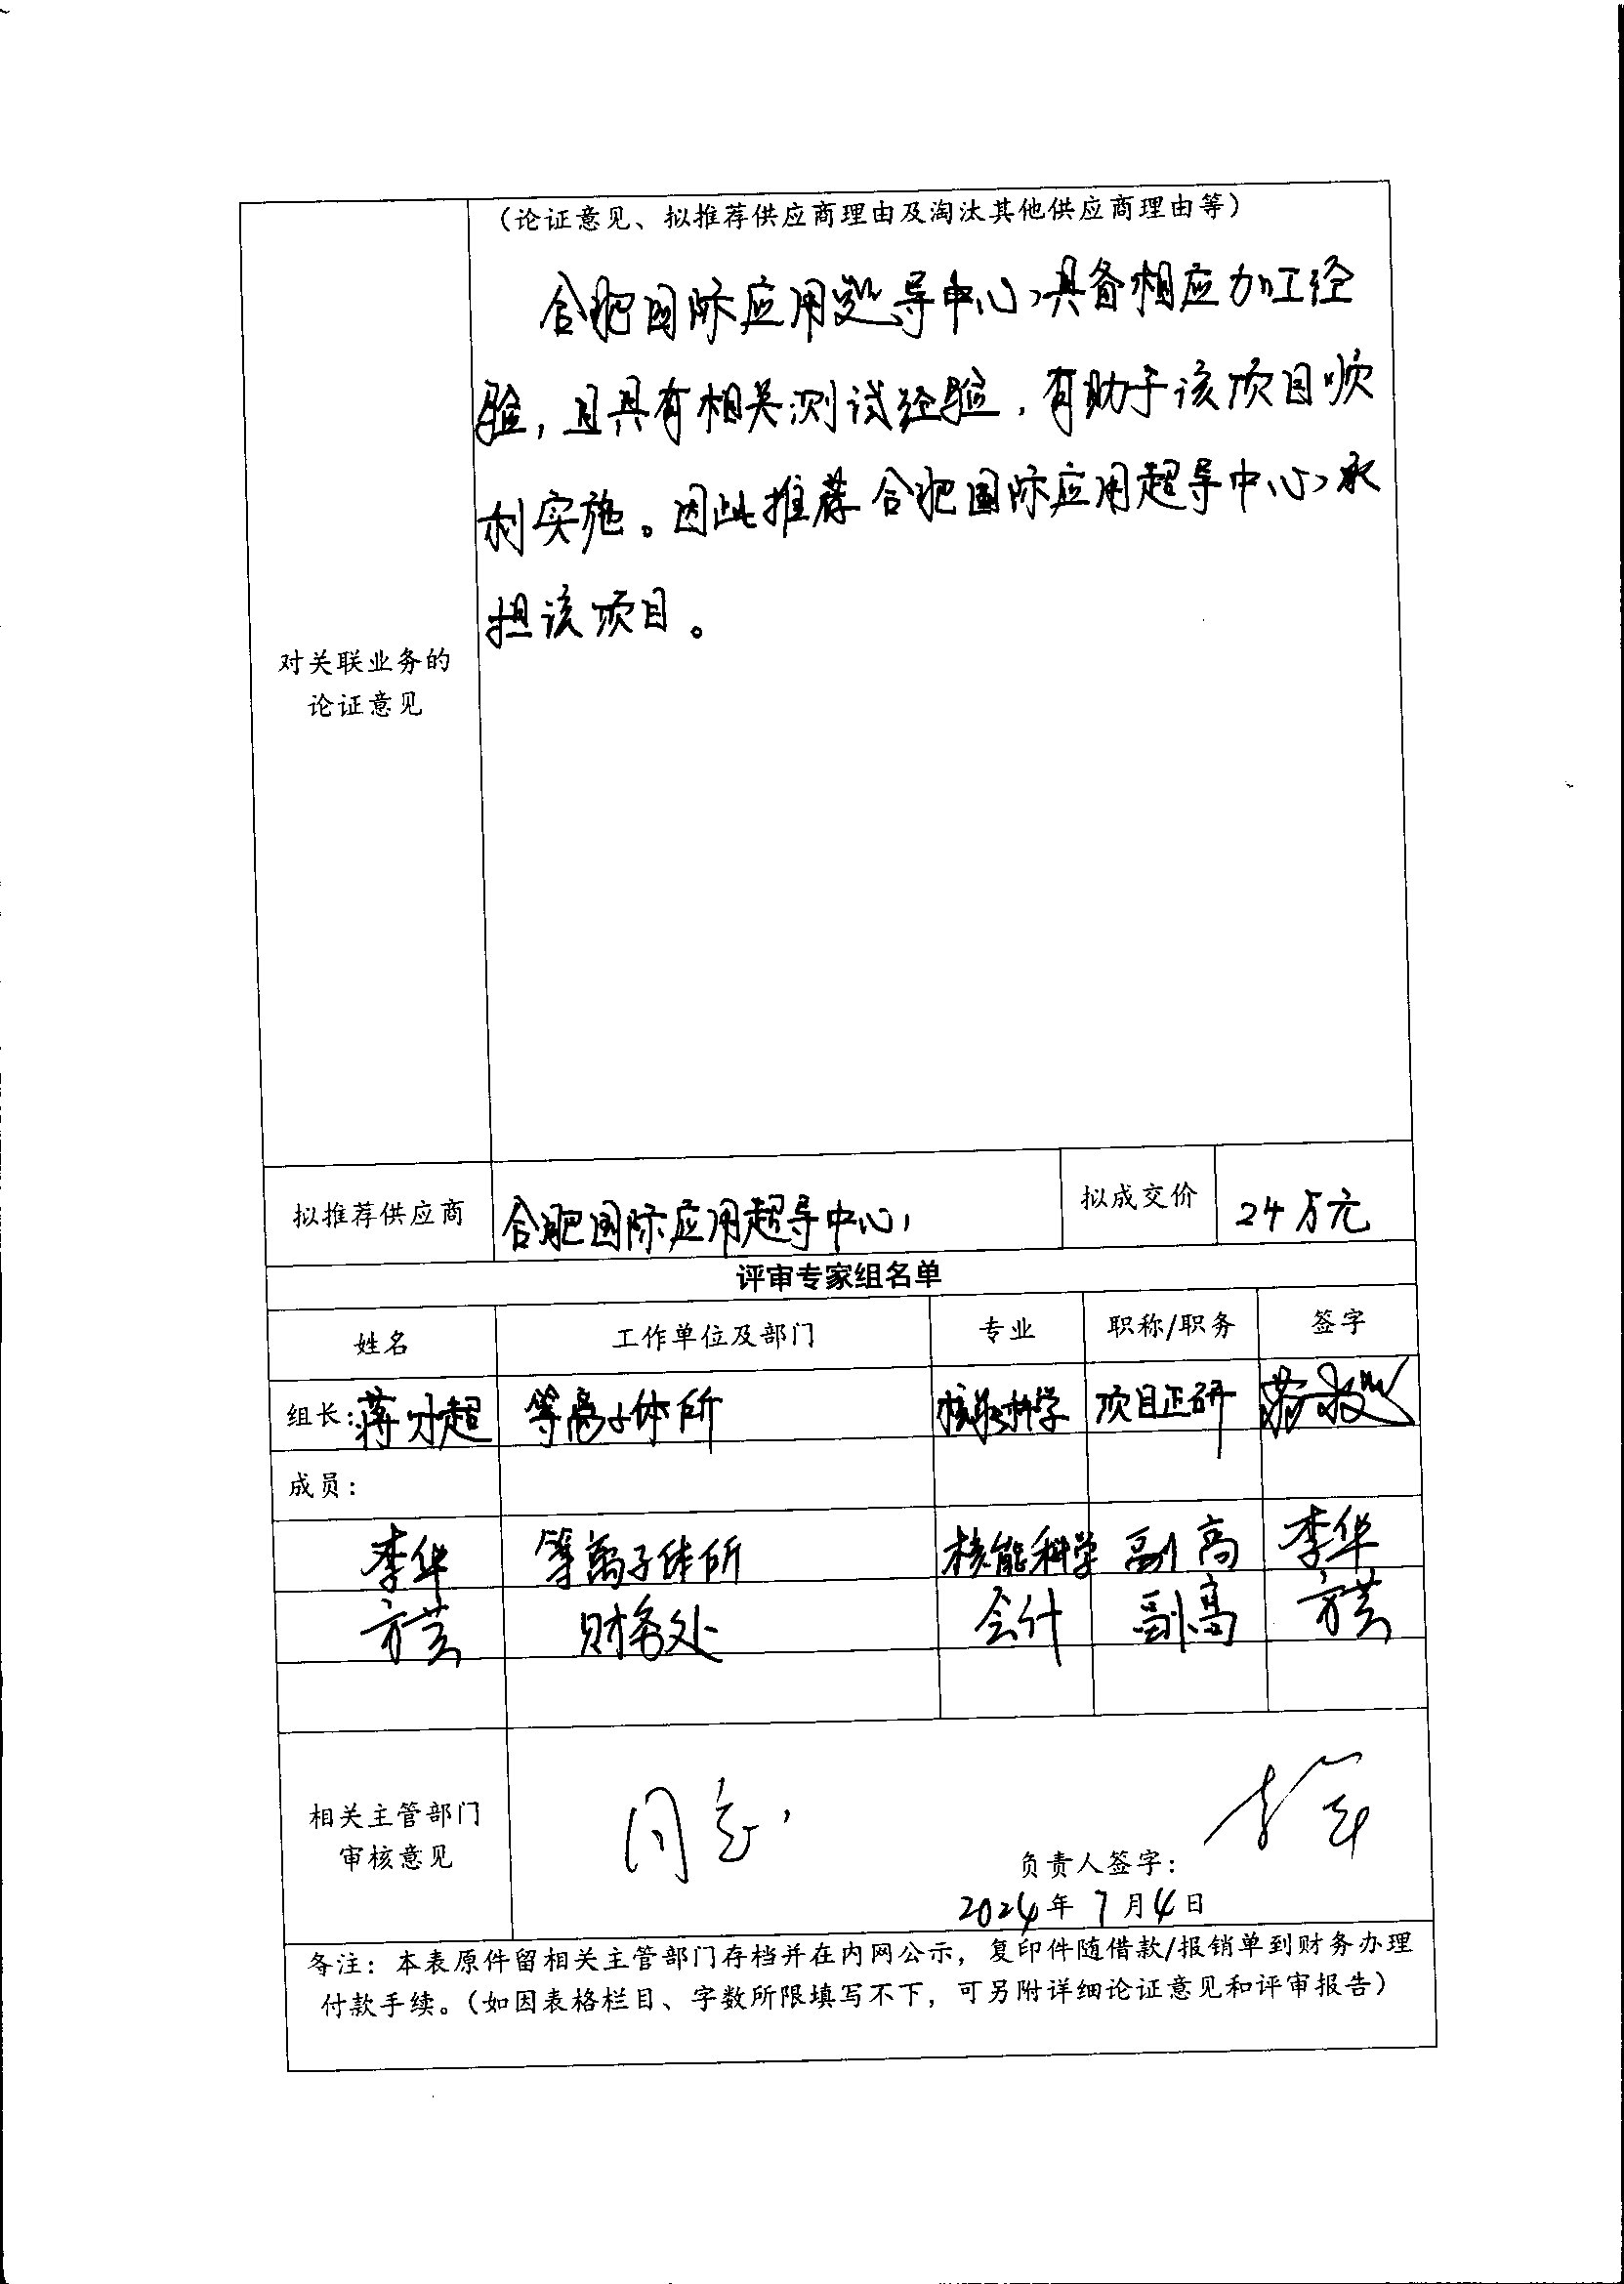 （论证意见、拟推荐供应商理由及淘汰其他供应商理由等）
合肥国际应用超导中心具备相应加工经
验，且具有相关测试经验，有助于该项目顺
利实施。因此推荐合肥国际应用超导中心承
担该项目。
对关联业务的
论证意见
拟推荐供应商 合肥国际应用超导中心 拟成交价 24万元
评审专家组名单
姓名 工作单位及部门 专业 职称/职务 签字
组长：蒋才超 等离子体所 核能科学 项目正研 蒋才超
成员：
李华 等离子体所 核能科学 副高 李华
方芸 财务处 会计 副高 方芸
相关主管部门
审核意见
同意
负责人签字：
2024年7月4日
备注：本表原件留相关主管部门存档并在内网公示，复印件随借款/报销单到财务办理
付款手续。（如因表格栏目、字数所限填写不下，可另附详细论证意见和评审报告）